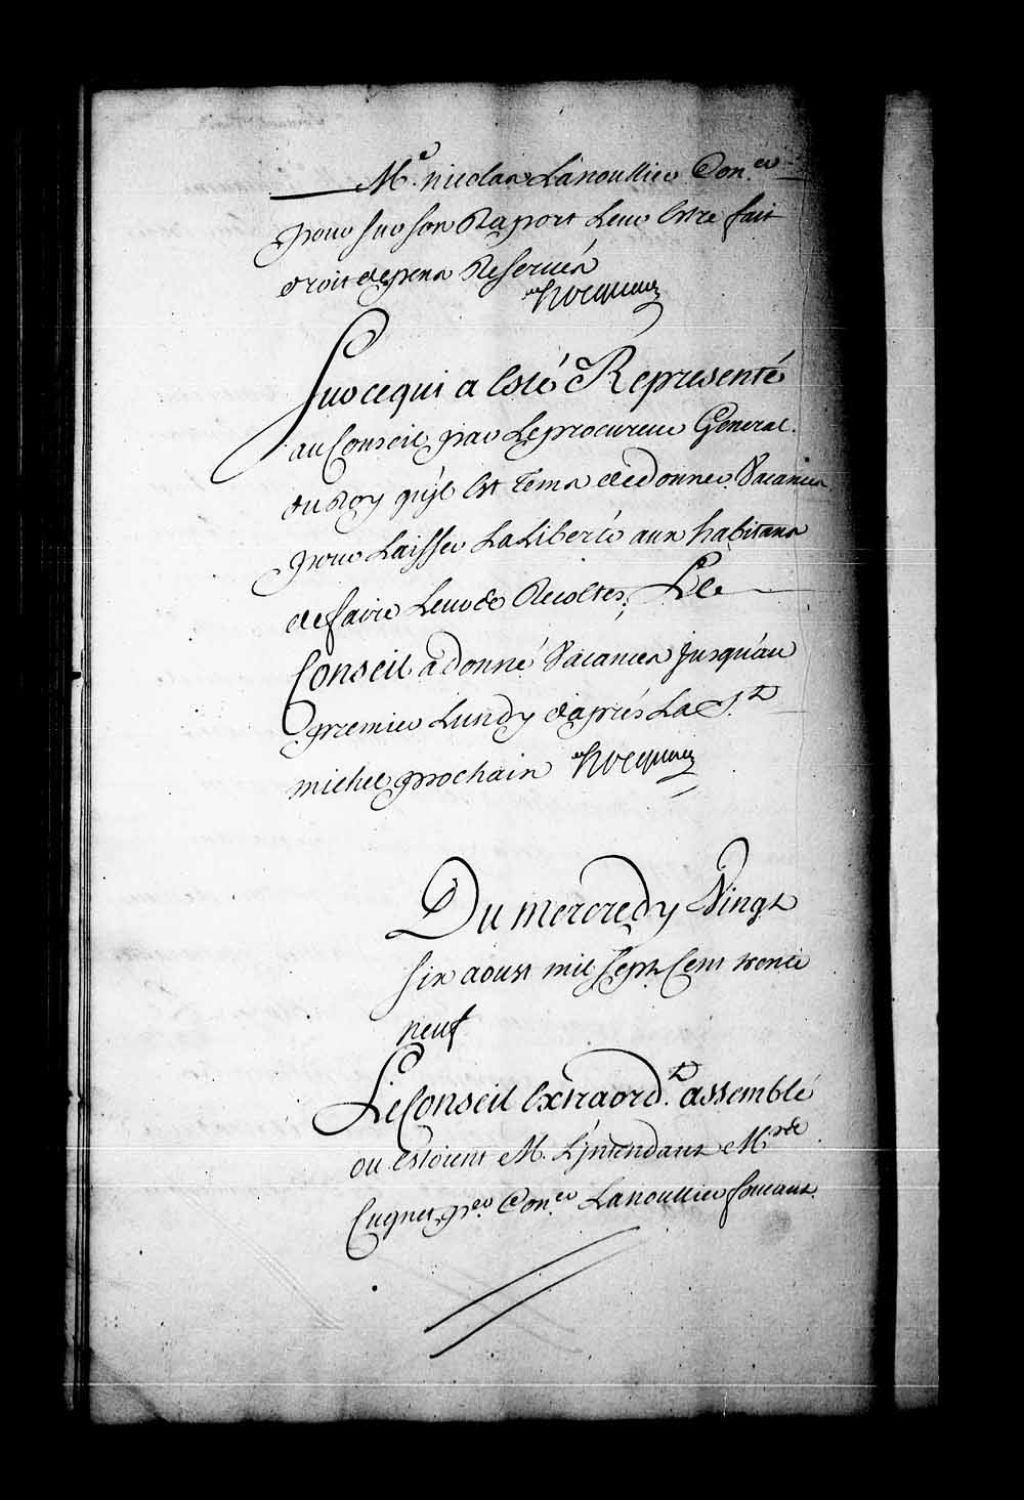 Me. nicolas Lanoullier Con.er
pour sur son Raport leur Estre fait
droit depens Reservés
Hocquart
Sur ce qui a Esté Representé
au Conseil par Le procureur General
du Roy qu'jl Est tems de donner Vacances
pour Laisser La Liberté aux habitans
de faire Leurs Recoltes; Le
Conseil a donné Vacances jusqu'au
premier Lundy d'aprés La St.
michel prochain Hocquart
Du mercredy Vingt
six aoust mil sept Cent trente
neuf
Le Conseil Extraord.t assemblé
ou Estoient M. L'jntendant Mrs
Cugnet per. Con.er Lanoullier foucault